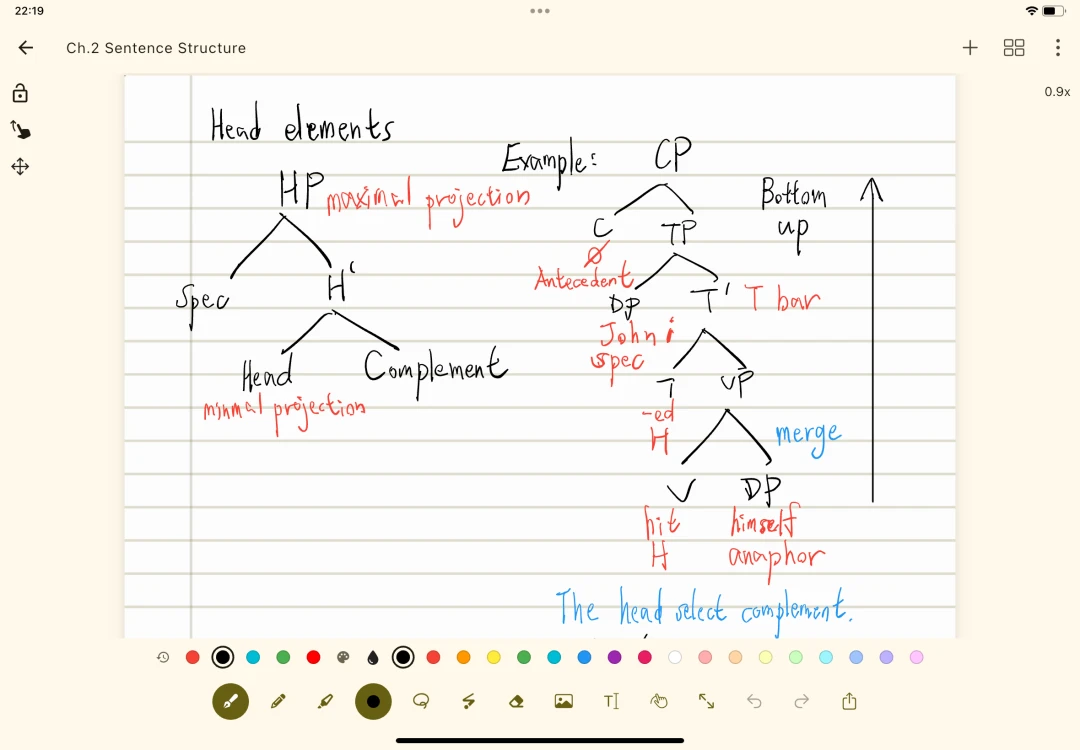 22:19
Ch.2 Sentence Structure
0.9x
Head elements
HP maximal projection
Spec H'
Head Complement
minmal projection
Example:
CP
C TP
Ø
Antecedent
DP T' T bar
John i
spec
T VP
-ed
H
merge
V DP
hit himself
H anaphor
Bottom
up
The head select complement.